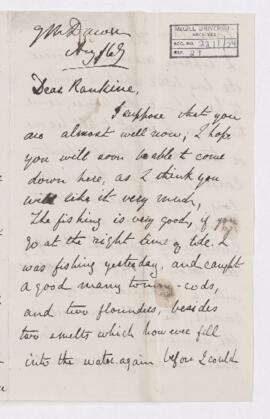 GM Dawson
Aug/67
McGILL UNIVERSITY
ARCHIVES
ACC. NO. 2211/54
REF. 27
Dear Rankine,
I suppose that you
are almost well now, I hope
you will soon be able to come
down here, as I think you
will like it very much,
The fishing is very good, if you
go at the right time of tide. I
was fishing yesterday, and caught
a good many tommy-cods,
and two flounders, besides
two smelts which however fell
into the water again before I could